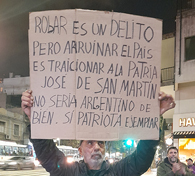 ROBAR ES UN DELITO
PERO ARRUINAR EL PAIS
ES TRAICIONAR A LA PATRIA
JOSE DE SAN MARTIN
NO SERIA ARGENTINO DE
BIEN. SI PATRIOTA EJEMPLAR
HA